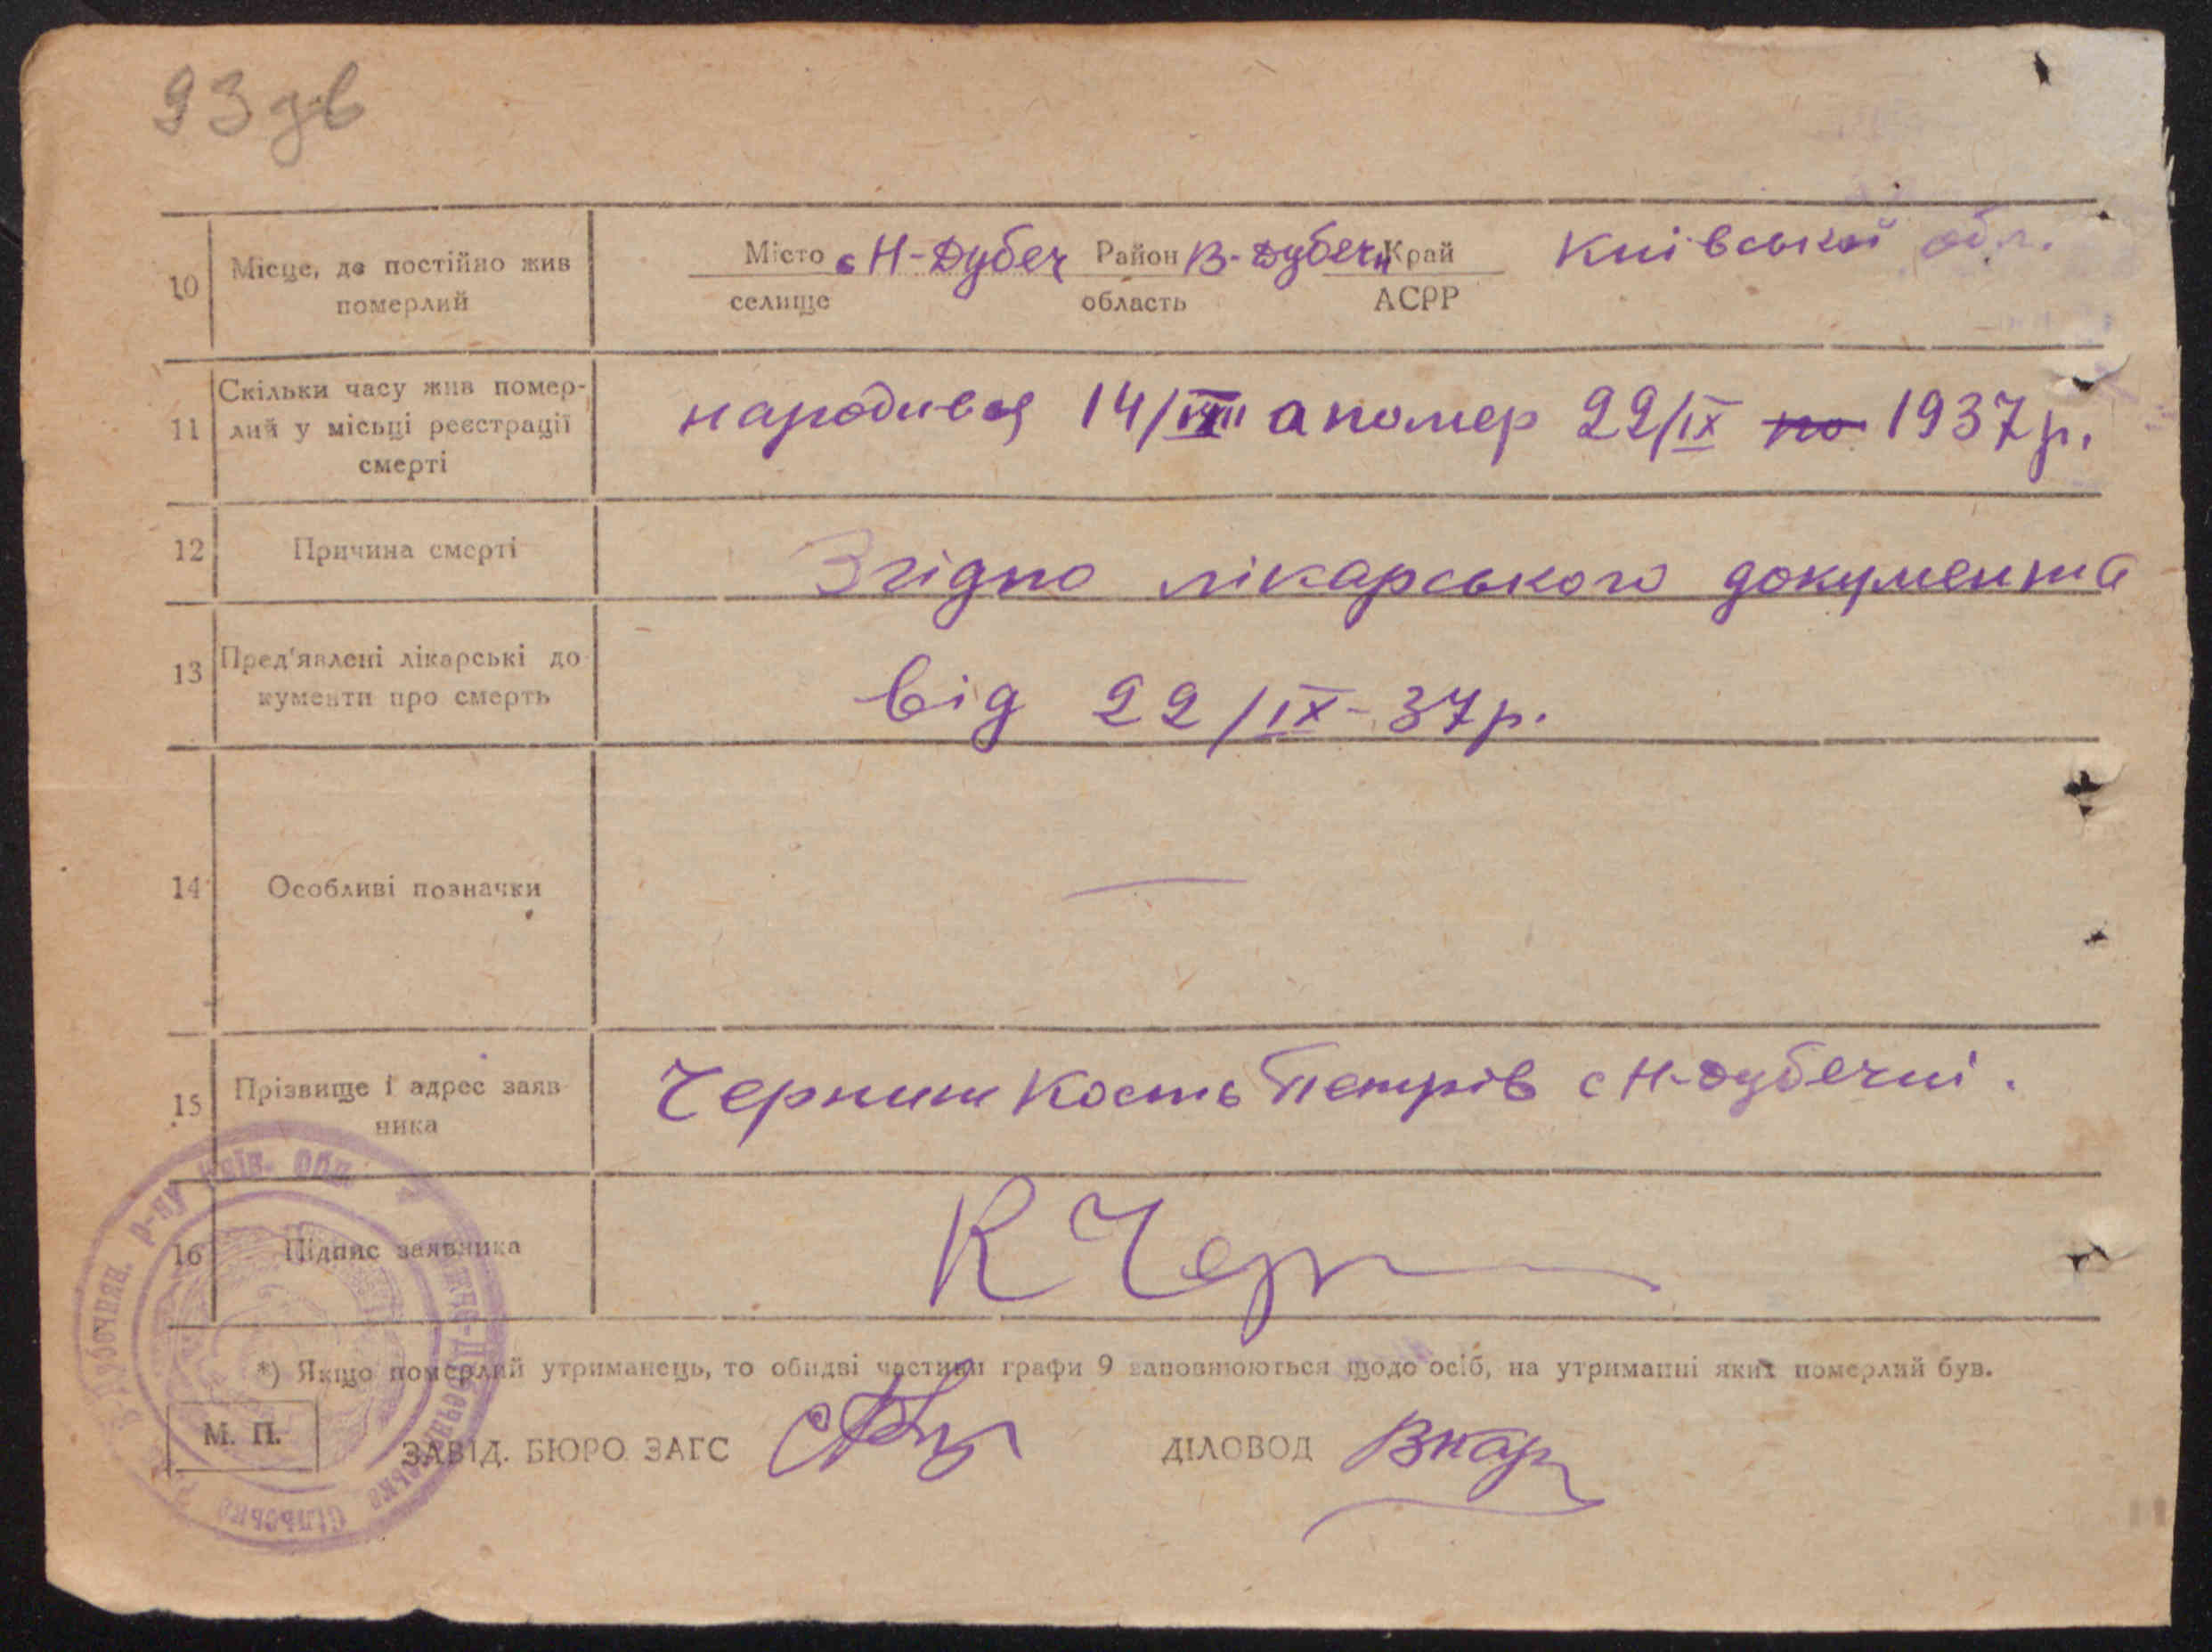 93 дв
10 Місце, де постійно жив померлий
Місто с Н-Дубеч Район В-Дубечн Край Київської обл.
селище область АСРР
11 Скільки часу жив помер-
лий у місьці реєстрації
смерті
народився 14/ а помер 22/IX 1937 р.
12 Причина смерті
Згідно лікарського документа
13 Пред'явлені лікарські до
кументи про смерть
від 22/IX-37 р.
14 Особливі позначки —
15 Прізвище і адрес заяв
ника
Черниш Кость Петрів с Н-Дубечні.
16 Підпис заявника
К Чер
*) Якщо померлий утриманець, то обидві частини графи 9 заповнюються щодо осіб, на утриманні яких померлий був.
М. П.
ЗАВІД. БЮРО ЗАГС
ДІЛОВОД
р-ну Київ. Обл.
сільська